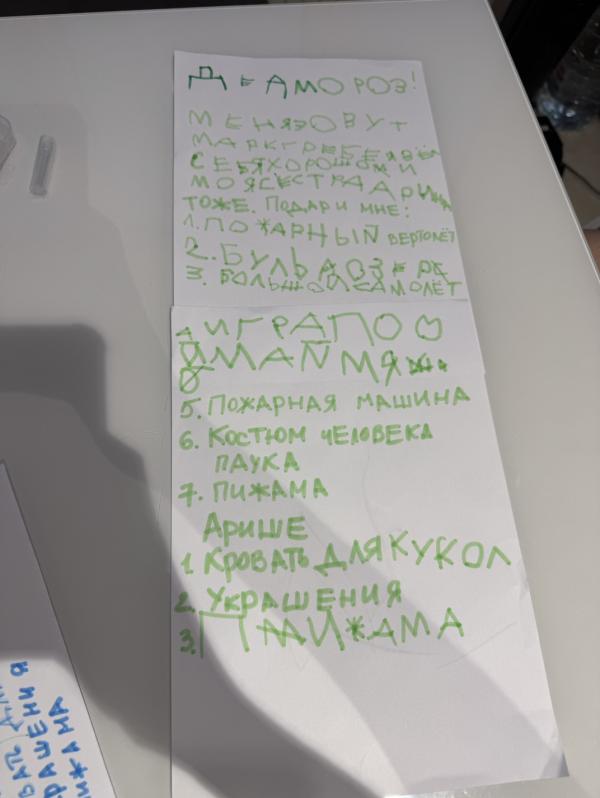 ДЕДМОРОЗ!
МЕНЯЗОВУТ
МАРК
СЕБЯХОРОШО И
МОЯСЕСТРА АРИНА
ТОЖЕ. ПОДАРИ МНЕ:
1. ПОЖАРНЫЙ ВЕРТОЛЁТ
2. БУЛЬДОЗЕР
3. БОЛЬШОЙСАМОЛЁТ
4 ИГРАПОО
ЙМАЙ МЯ
5. ПОЖАРНАЯ МАШИНА
6. КОСТЮМ ЧЕЛОВЕКА
ПАУКА
7. ПИЖАМА
АРИШЕ
1 КРОВАТЬ ДЛЯ КУКОЛ
2. УКРАШЕНИЯ
3. ПИЖАМА